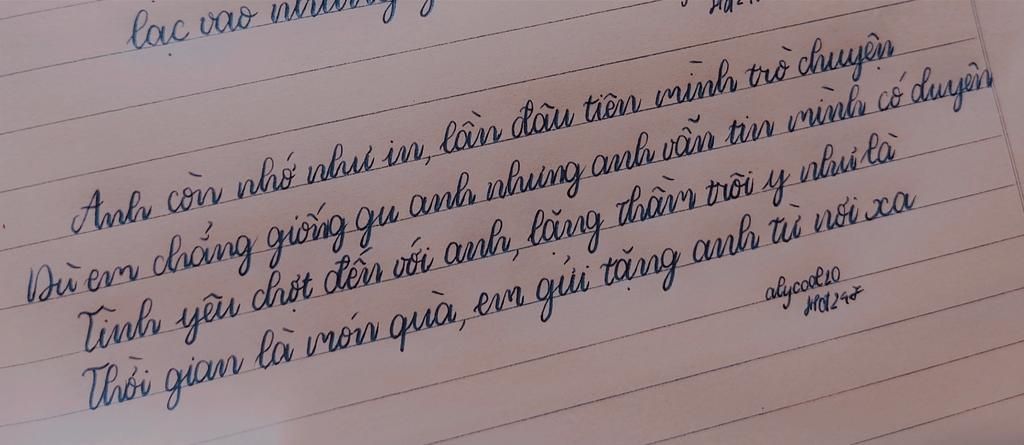 lạc vao
Anh còn nhớ như in, lần đầu tiên mình trò chuyện
Dù em chẳng giống gu anh nhưng anh vẫn tin mình có duyên
Tình yêu chợt đến với anh, lặng thầm trôi y như là
Thời gian là món quà, em gửi tặng anh từ nơi xa
alycool20